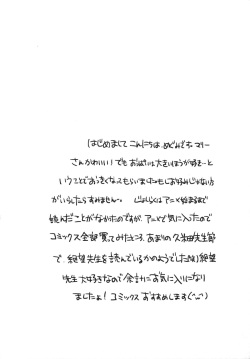 はじめまして こんにちは、めぐみです。マリー
さんかわいい!でもおっぱいは大きいほうが好きーと
いうことでおっきくなってもらいました。もしお好みじゃない方
がいらしたらすみません。じょしらくはアニメ始まるまで
読んだことがなかったのですが、アニメで気に入ったので
コミックス全部買ってみたところ、あまりの久米田先生節
で、絶望先生を読んでいるかのようでした(笑)絶望
先生大好きなので余計にお気に入りになり
ましたよ!コミックスおすすめします(^ω^)